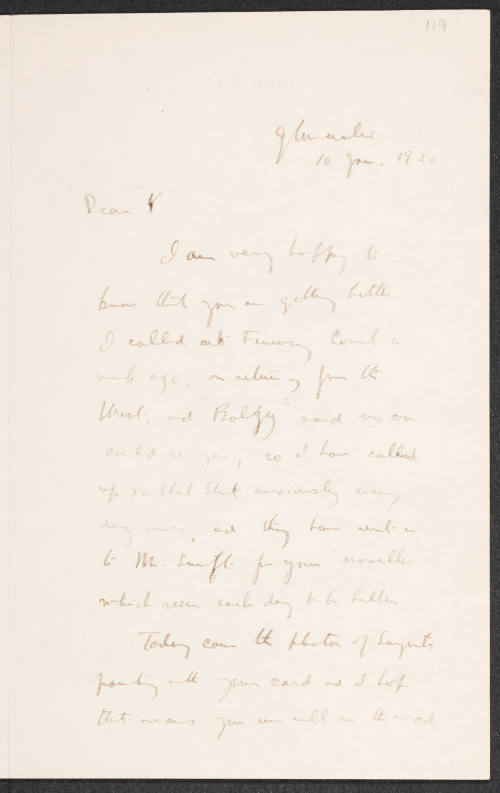 119
Gloucester
10 Jan. 1920
Dear "Y"
I am very happy to
know that you are getting better
I called at Fenway Court a
week ago, on returning from the
West, and "Bolgy" said no one
could see you, so I have called
up so that anxiously every
day since, and they have sent me
to Mr. Swift for your "novelle"
which seem each day to be better
Today came the photos of Sargent's
painting with your card and I hope
that means you are well on the road